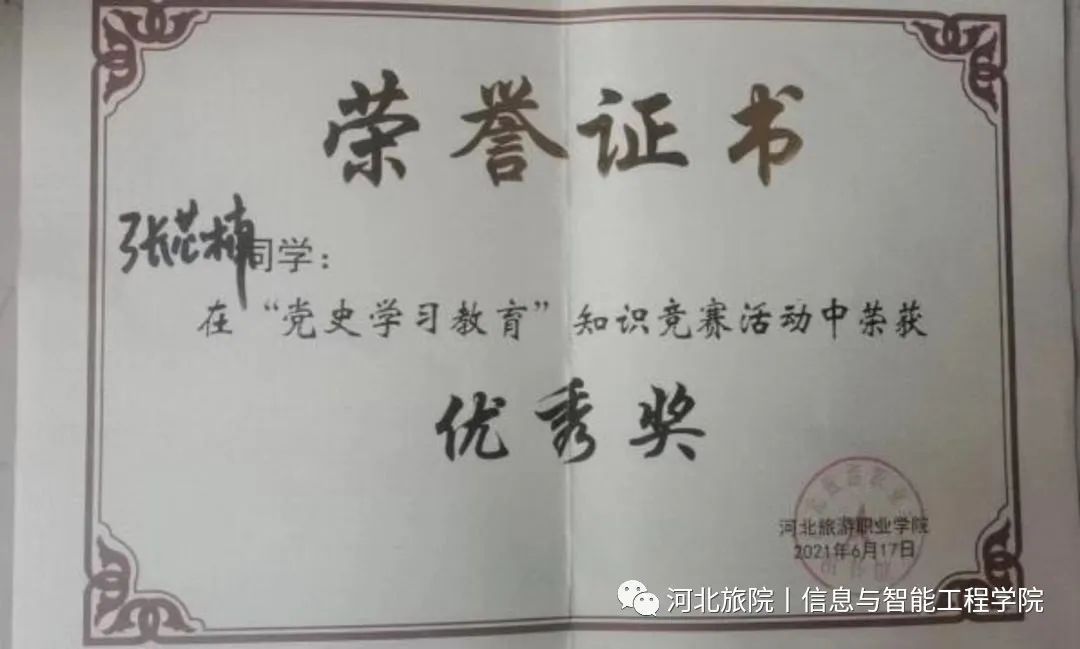 荣誉证书
张芷楠同学：
在“党史学习教育”知识竞赛活动中荣获
优秀奖
河北旅游职业学院
2021年6月17日
河北旅院丨信息与智能工程学院